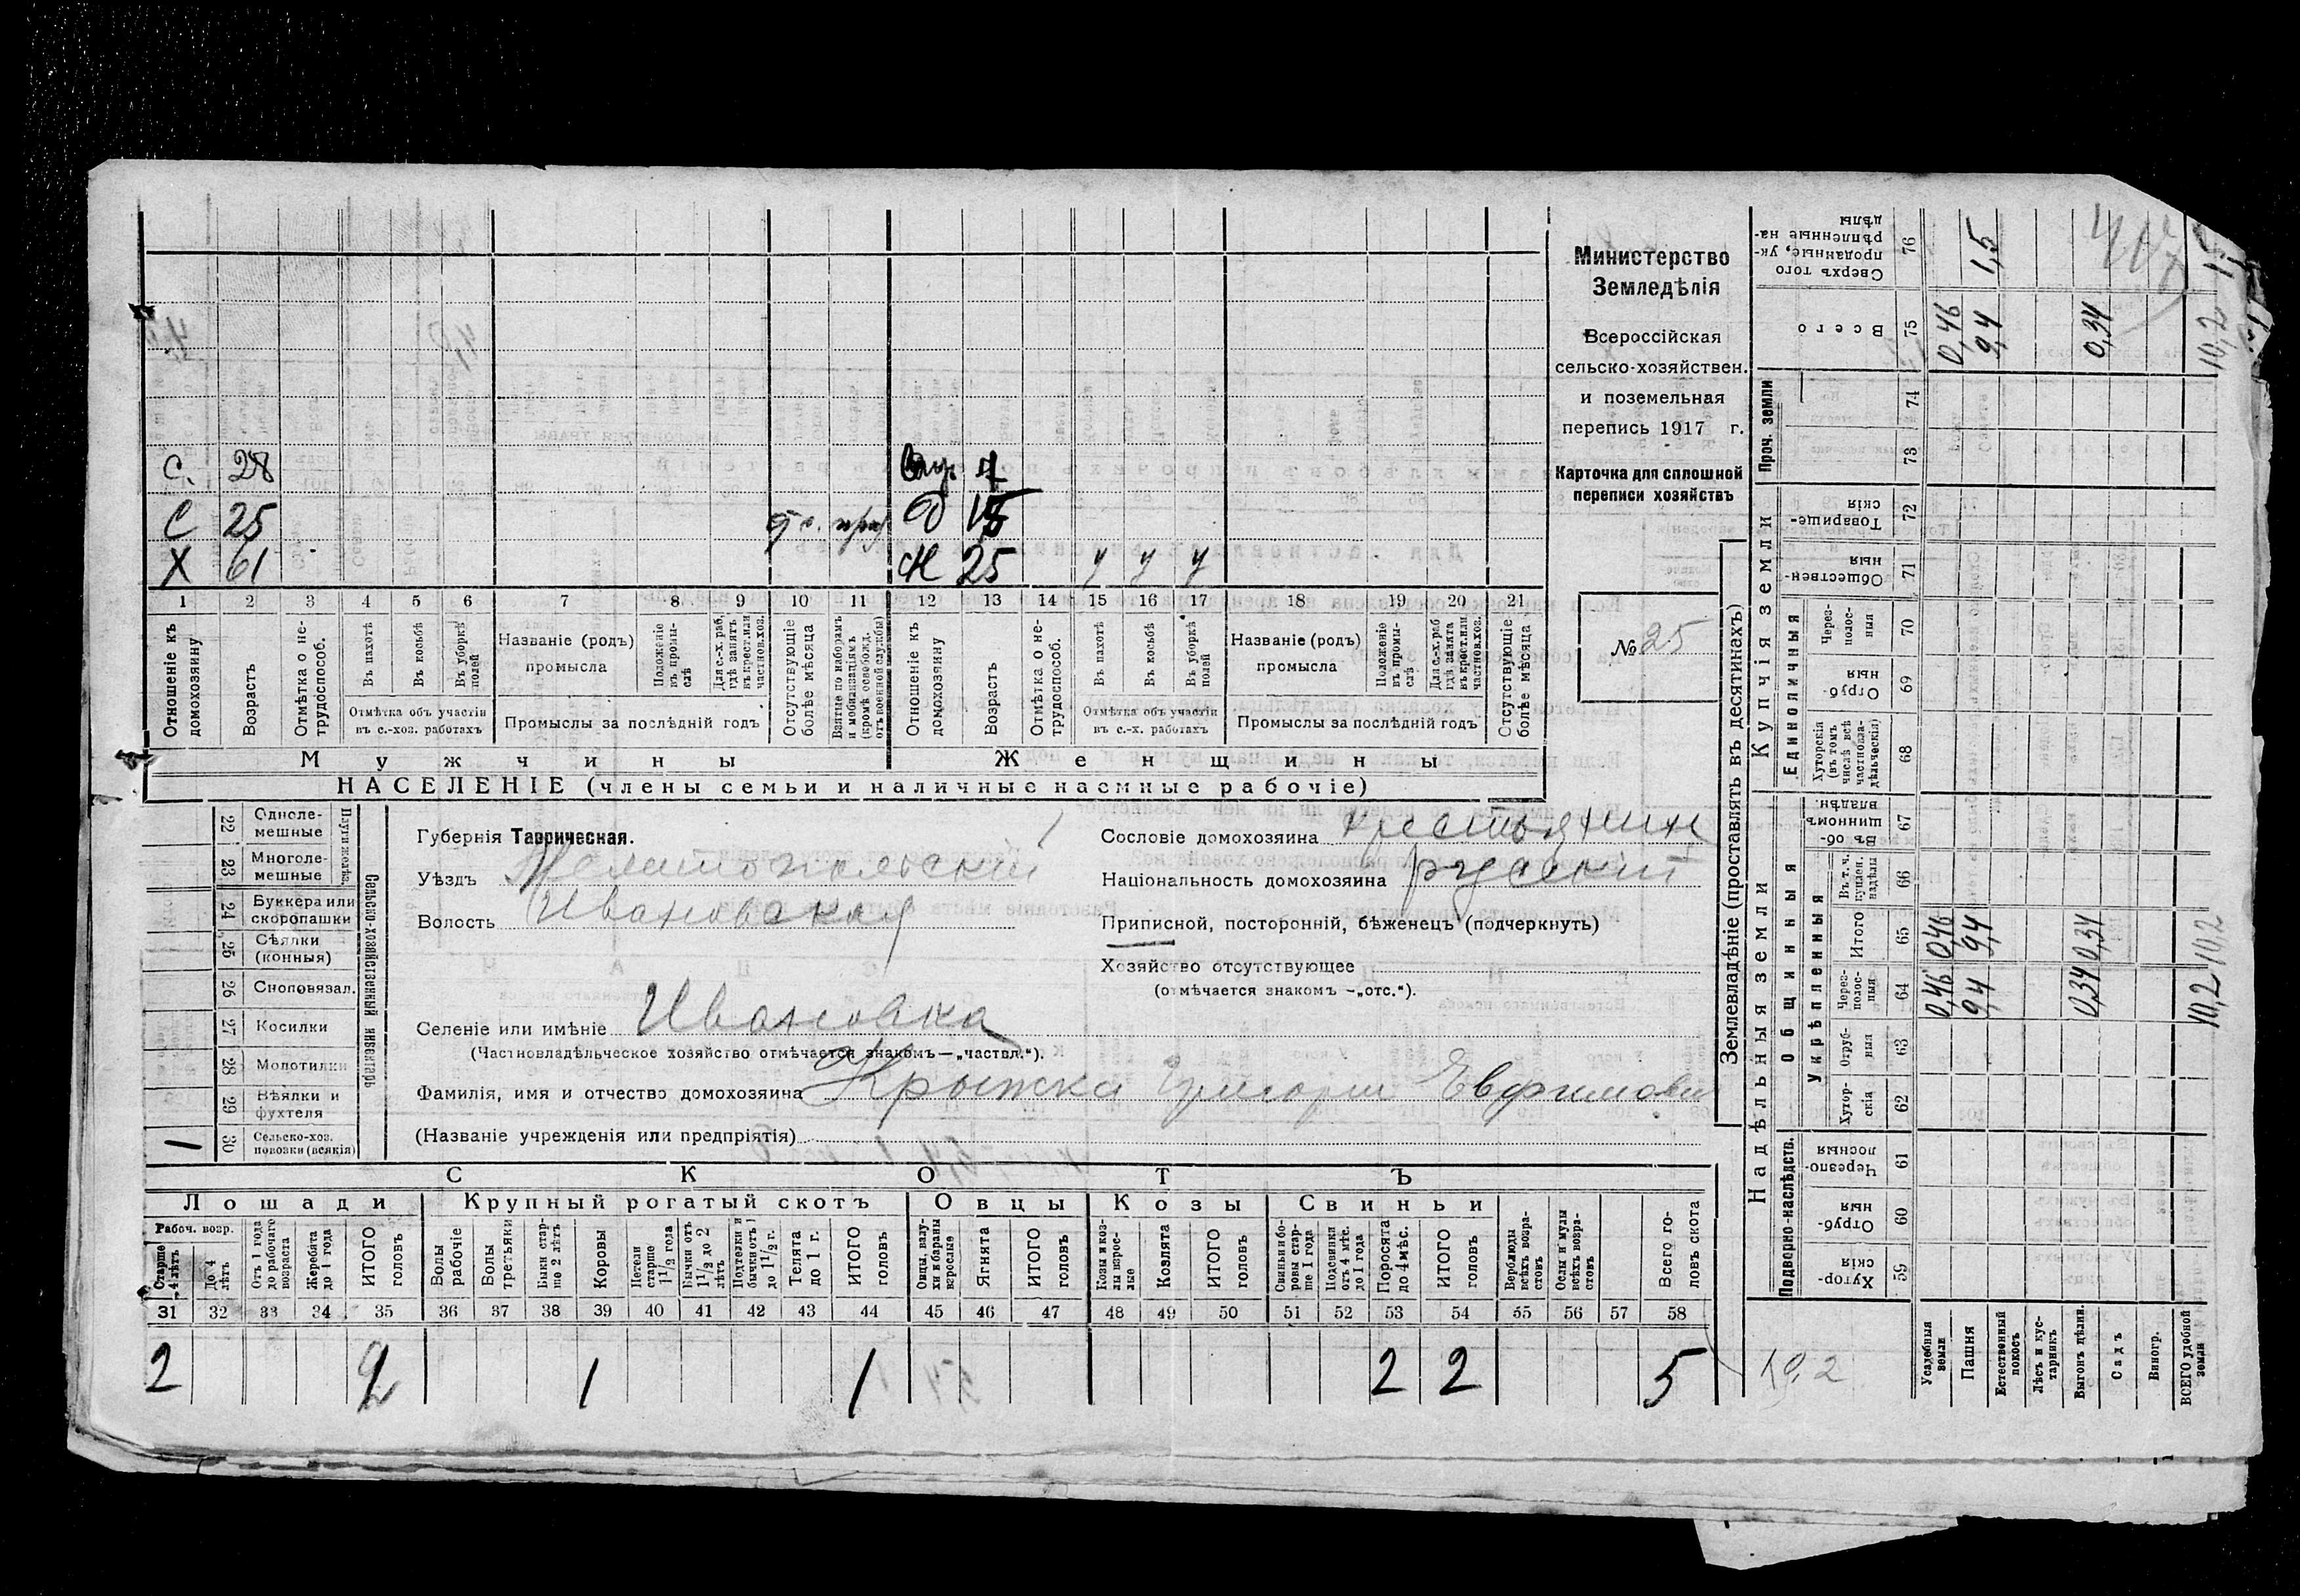 Министерство
Земледѣлія
Всероссійская
сельско-хозяйствен.
и поземельная
перепись 1917 г.
Карточка для сплошной
переписи хозяйствъ
№ 25
С. 28
С 25
Х 61
7
Д 15
Ж 25 у у у
1 2 3 4 5 6 7 8 9 10 11 12 13 14 15 16 17 18 19 20 21
Отношеніе къ домохозяину
Возрастъ
Отмѣтка о нетрудоспособ.
Въ пахотѣ
Въ косьбѣ
Въ уборкѣ полей
Отмѣтка объ участіи
въ с.-хоз. работахъ
Названіе (родъ)
промысла
Положеніе въ промыслѣ
Для с.-х. раб. гдѣ занятъ въ крест. или частнов. хоз.
Промыслы за послѣдній годъ
Отсутствующіе болѣе мѣсяца
Взятые по наборамъ и мобилизаціямъ (кромѣ освобожд. отъ военной службы)
Отношеніе къ домохозяину
Возрастъ
Отмѣтка о нетрудоспособ.
Въ пахотѣ
Въ косьбѣ
Въ уборкѣ полей
Отмѣтка объ участіи
въ с.-х. работахъ
Названіе (родъ)
промысла
Положеніе въ промыслѣ
Для с.-х. раб. гдѣ занята въ крест. или частнов. хоз.
Промыслы за послѣдній годъ
Отсутствующіе болѣе мѣсяца
Мужчины Женщины
НАСЕЛЕНІЕ (члены семьи и наличные наемные рабочіе)
22 Одноле-
мешные
23 Многоле-
мешные
Плуги желѣз.
24 Буккера или
скоропашки
25 Сѣялки
(конныя)
26 Сноповязал.
27 Косилки
28 Молотилки
29 Вѣялки и
фухтеля
30 Сельско-хоз.
повозки (всякія)
1
Сельско-хозяйственный инвентарь
Губернія Таврическая.
Уѣздъ Мелитопольскій
Волость Ивановская
Сословіе домохозяина крестьянин
Національность домохозяина русский
Приписной, посторонній, бѣженецъ (подчеркнуть)
Хозяйство отсутствующее
(отмѣчается знакомъ —„отс.“).
Селеніе или имѣніе Ивановка
(Частновладѣльческое хозяйство отмѣчается знакомъ—„частвл.“).
Фамилія, имя и отчество домохозяина Крыжка Григорій Евфимович
(Названіе учрежденія или предпріятія)
СКОТЪ
Лошади Крупный рогатый скотъ Овцы Козы Свиньи
Рабоч. возр.
Старше 4 лѣтъ
До 4 лѣтъ
Отъ 1 года до рабочаго возраста
Жеребята до 1 года
ИТОГО головъ
Волы рабочіе
Волы третьяки
Быки старше 2 лѣтъ
Коровы
Нетели старше 1 1/2 года
Бычки отъ 1 1/2 до 2 лѣтъ
Подтелки и бычки отъ 1 до 1 1/2 г.
Телята до 1 г.
ИТОГО головъ
Овцы, валухи и бараны взрослые
Ягнята
ИТОГО головъ
Козы и козлы взрослые
Козлята
ИТОГО головъ
Свиньи и боровы старше 1 года
Подсвинки отъ 4 мѣс. до 1 года
Поросята до 4 мѣс.
ИТОГО головъ
Верблюды всѣхъ возрастовъ
Ослы и мулы всѣхъ возрастовъ
Всего головъ скота
31 32 33 34 35 36 37 38 39 40 41 42 43 44 45 46 47 48 49 50 51 52 53 54 55 56 57 58
2 2 1 1 2 2 5
Землевладѣніе (проставлять въ десятинахъ)
Надѣльныя земли Купчія земли Проч. земли
Подворно-наслѣдств.
Общинныя
Укрѣпленныя
Единоличныя
Хуторскія 59
Отрубныя 60
Черезполосныя 61
Хуторскія 62
Отрубныя 63
Черезполосныя 64 0,46 9,4 0,34 10,2
Итого 65 0,46 9,4 0,34 10,2
Въ т. ч. куплен. надѣлы 66
Въ общинномъ владѣн. 67
Хуторскія (въ томъ числѣ всѣ частновладѣльческія) 68
Отрубныя 69
Черезполосныя 70
Общественныя 71
Товарищескія 72
73
74
Всего 75 0,46 9,4 0,34 10,2
Сверхъ того проданные, укрѣпленные надѣлы 76 1,5
Усадебныя земли
Пашня
Естественный покосъ
Лѣсъ и кустарникъ
Выгонъ дѣлин.
Садъ
Виногр.
ВСЕГО удобной земли
10,2